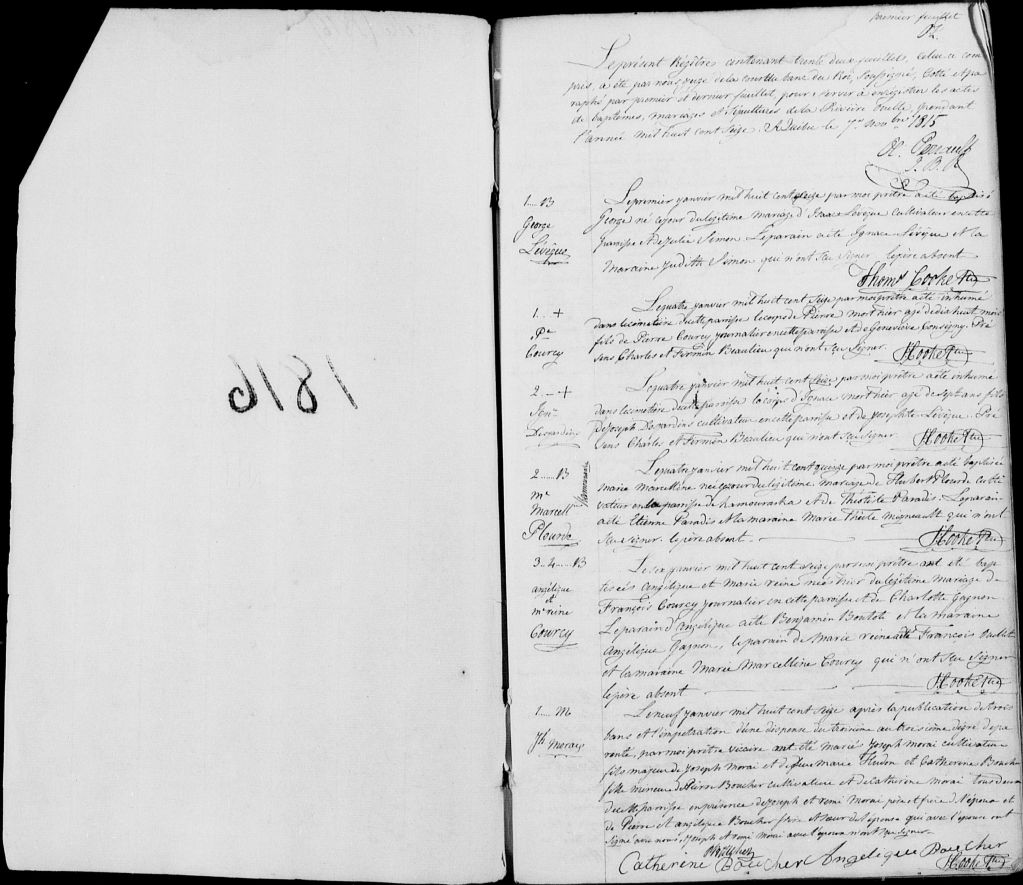 1816
premier feuillet
Le présent Régître contenant trente deux feuillets, celui ci com
pris, a été par nous juge de la cour du banc du Roi, soussigné, Cotté et pa
raphé par premier et dernier feuillet, pour servir à enregistrer les actes
de baptêmes, mariages et sépultures de la Rivière Ouelle, pendant
l'année mil huit cent seize. A Québec le 7e Novbre 1815
Ol. Perrault
J. B. R.
1.... B
George
Lévêque
Le premier janvier mil huit cent seize par moi prêtre a été baptisé
George né ce jour du légitime mariage d'Isaac Lévêque cultivateur en cette
paroisse et de Julie Simon. Le parain a été Ignace Lévêque et la
maraine Judith Simon qui n'ont su signer le père absent
Thoms. Cooke Ptre
1... +
Pre
Courcy
Le quatre janvier mil huit cent seize par moi prêtre a été inhumé
dans le cimetière de cette paroisse le corps de Pierre mort hier agé de dix huit mois
fils de Pierre Courcy journalier en cette paroisse et de Geneviève Consigny. Pré
sens Charles et Firmin Beaulieu qui n'ont su signer.
T Cooke Ptre
2... +
Desjardins
Le quatre janvier mil huit cent seize par moi prêtre a été inhumé
dans le cimetière de cette paroisse le corps d'Ignace mort hier agé de sept ans fils
de Joseph Desjardins cultivateur en cette paroisse et de Josephte Lévêque. Pré
sens Charles et Firmin Beaulieu qui n'ont su signer.
T Cooke Ptre
2..... B
Me
Marcell
Plourde
Kamouraska
Le quatre janvier mil huit cent seize par moi prêtre a été baptisée
marie marcelline née ce jour du légitime mariage de Hubert Plourde culti
vateur en la paroisse de Kamouraska et de Théotiste Paradis. Le parain
a été Etienne Paradis et la maraine Marie Thècle Migneault qui n'ont
su signer. le père absent.
T Cooke Ptre
3..4.... B
angélique
et
me reine
Courcy
Le six janvier mil huit cent seize par moi prêtre ont été bap
tisées angélique et Marie reine nées hier du légitime mariage de
François Courcy journalier en cette paroisse et de Charlotte Gagnon
Le parain d'angélique a été Benjamin Boutot et la maraine
Angélique Gagnon, le parain de Marie reine a été François
et la maraine Marie Marcelline Courcy qui n'ont su signer
le père absent
T Cooke Ptre
1..... M
Jh morais
Le neuf janvier mil huit cent seize après la publication de trois
bans et l'impétration d'une dispense du troisième au troisième dégré de pa
renté, par moi prêtre vicaire ont été mariés Joseph morai cultivateur
fils majeur de Joseph Morai et de feue Marie Hudon et Catherine Boucher
fille mineure de Pierre Boucher cultivateur et de Catherine morai tous deux
de cette paroisse en présence de Joseph et remi Morai père et frère de l'époux et
de Pierre et angélique Boucher frère et sœur de l'épouse qui avec l'épouse ont
signé avec nous, Joseph et remi Morai avec l'époux n'ont su signer.
Catherine Boucher Angelique Boucher
T Cooke Ptre